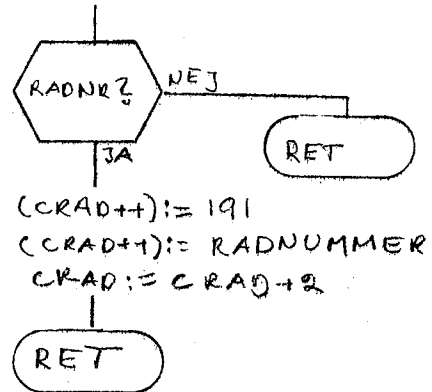 RADNR?
NEJ
JA
RET
(CRAD++):= 191
(CRAD++):= RADNUMMER
CRAD:= CRAD+2
RET